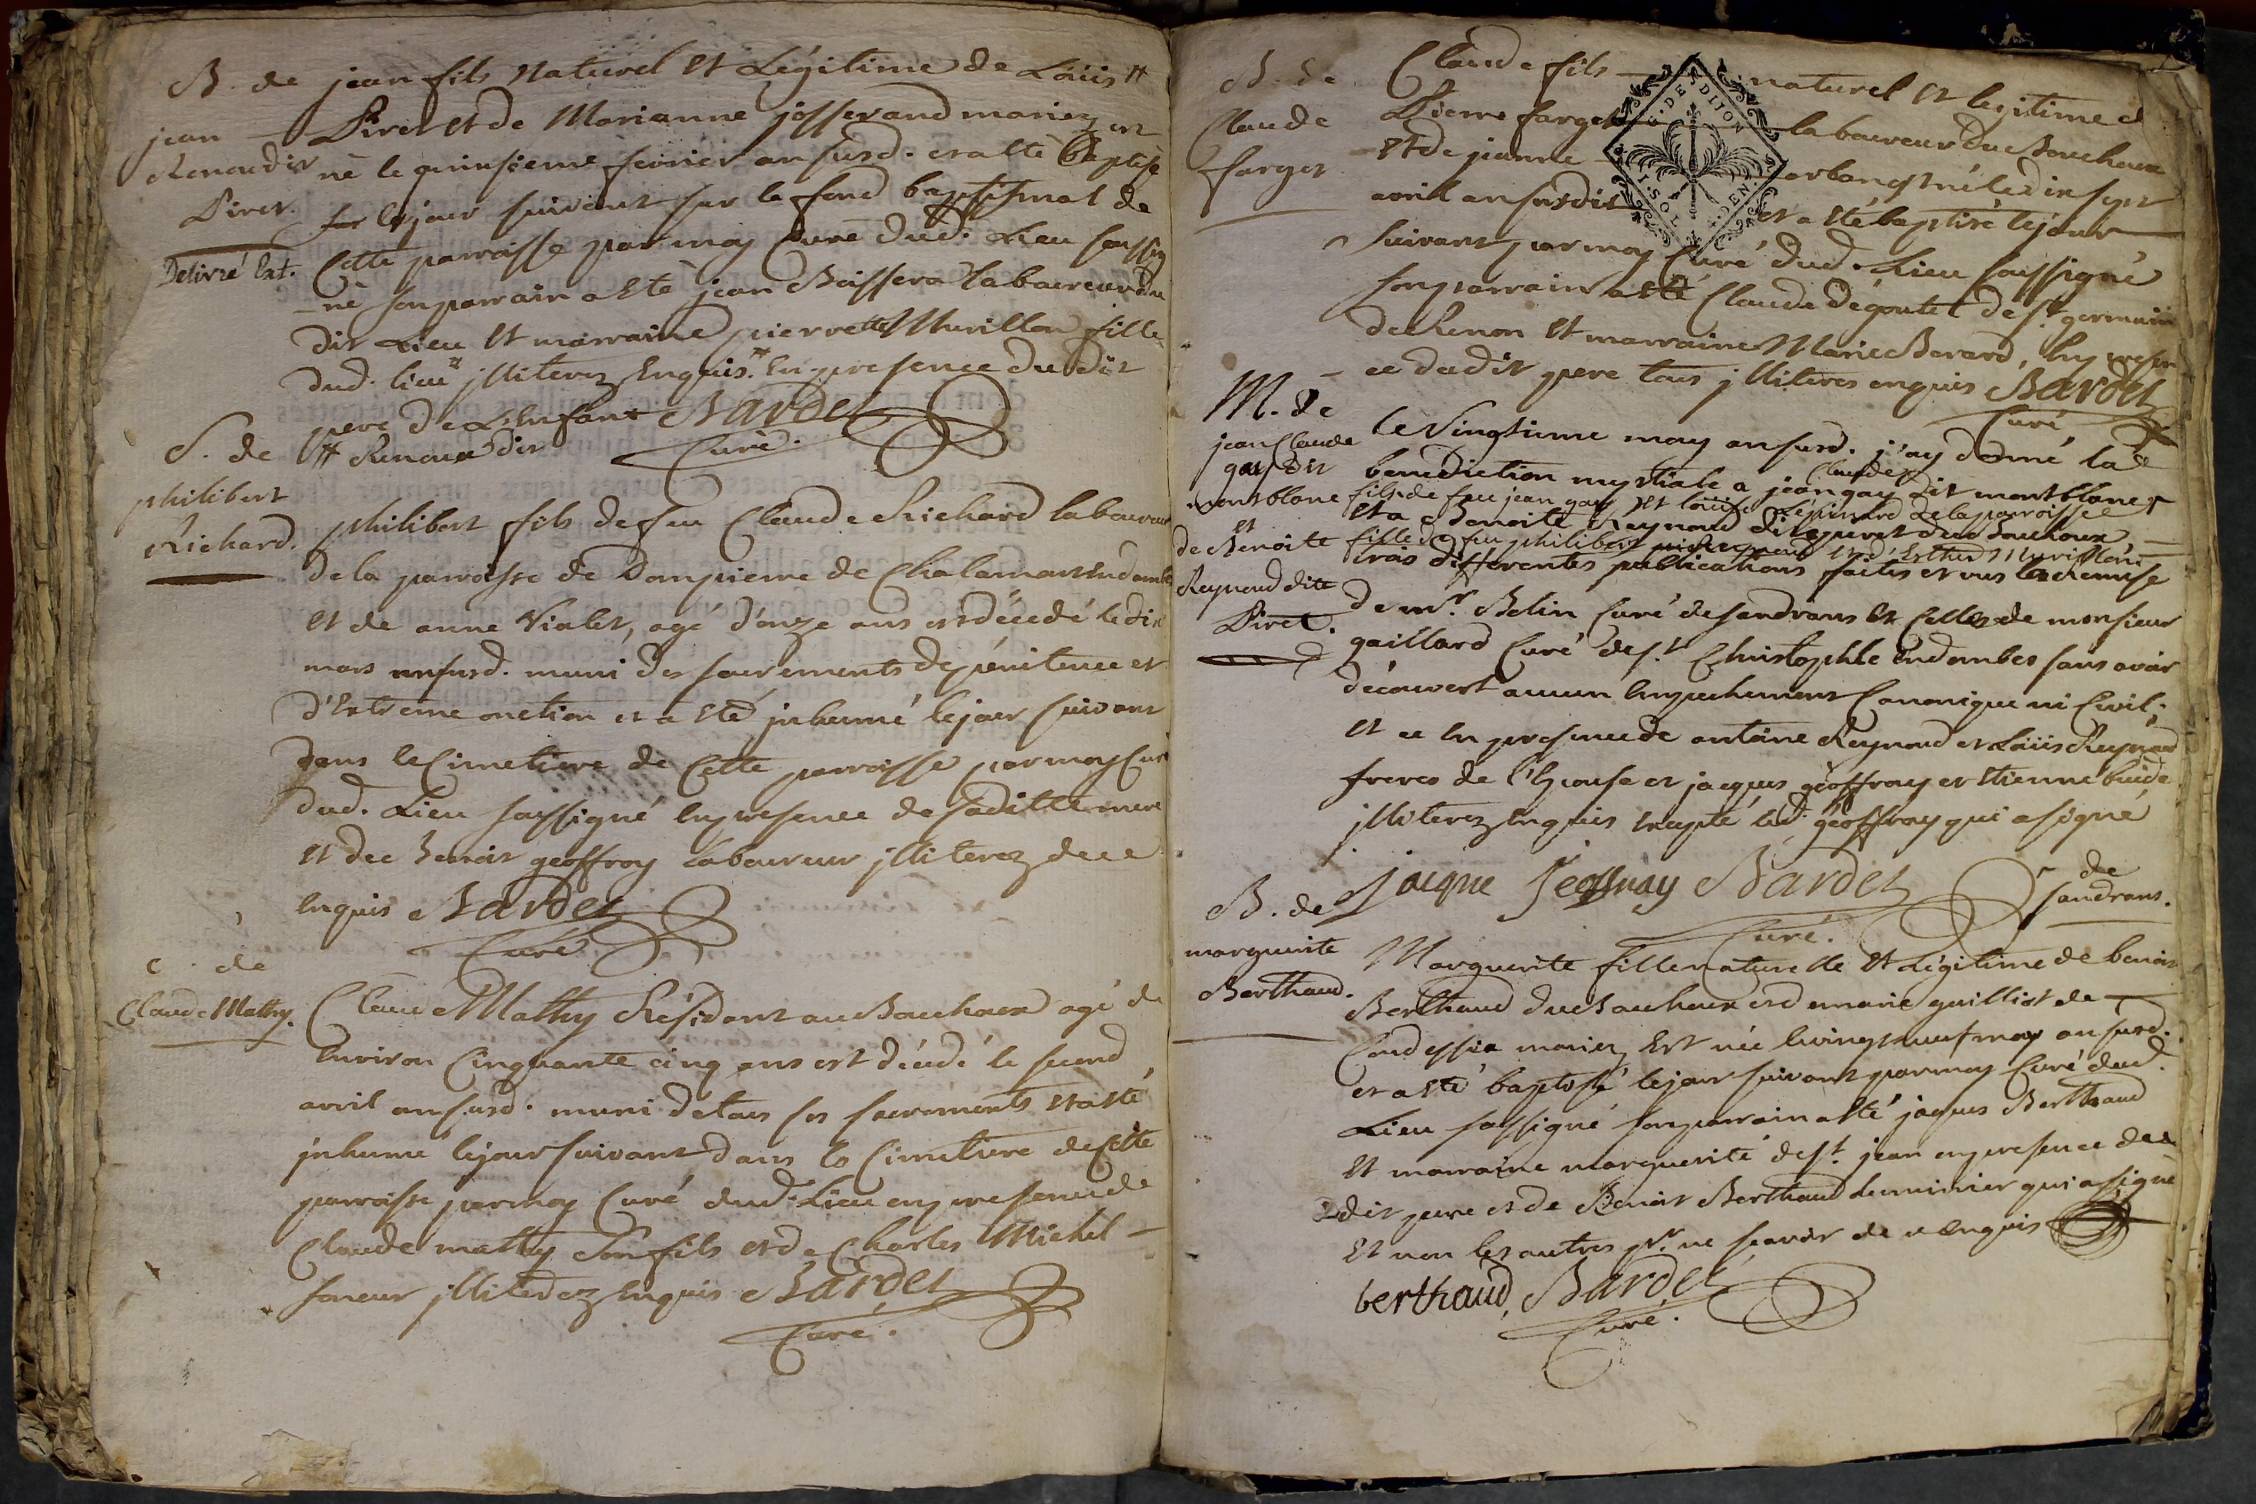 B. de
jean
Renaudir
Piret.
Delivré Ext.
jean fils Naturel Et Légitime de Loüis #
Piret et de Marianne josserand mariez est
né le quinsieme fevrier an susd. et a Eté Baptisé
le jour suivant sur le fond baptismal de
Cette parroisse par moy Curé dud. Lieu soussig
-né son parrain a Eté jean Boissera Laboureur du
dit Lieu Et marraine pierrette Murillon fille
dud. lieu jlliterez Enquis. En presence dudit
pere de L'Enfant Bardet
Curé.
# Renaudir
S. de
philibert
Richard.
philibert fils de feu Claude Richard laboureur
de la parroisse de Dompierre de Chalamont en dombe
Et de anne Vialet, agé d'onze ans est décédé le dix
mars an susd. muni des sacrements de pénitence et
d'Extreme onction et a Eté jnhumé le jour suivant
dans le Cimetiere de Cette parroisse par moy Curé
dud. Lieu soussigné En presence de sa ditte mere
Et de Benoit geoffroy Laboureur jlliterez de ce
Enquis Bardet
Curé
de
Claude Mathy.
Claude Mathy Résidant au Bouchoux agé de
Environ Cinquante cinq ans est décédé le second
avril an susd. muni de tous ses sacrements Et a Eté
jnhumé le jour suivant dans le Cimetiere de Cette
parroisse par moy Curé dud. Lieu en presence de
Claude mathy son fils et de Charles Michel -
jlliterez Enquis Bardet
Curé.
B. de
Claude
farget
Claude fils naturel Et legitime d
Pierre farget laboureur du Bouchoux
Et de jeanne né le dix sept
avril an susdit et a Eté baptisé le jour
suivant par moy Curé dud. Lieu soussigné
son parrain a Eté Claude Dégoutet de St germain
de Renon Et marraine Marie Berard, En presen
- ce dudit pere tous jlliteres enquis Bardet
Curé
G. DE DIJON
M. de
jean Claude
gay dit
montblanc
et
de Benoite
Reynaud dite
Piret.
Le Vingtieme may an susd. j'ay donné la
benediction nuptiale a jean Claude gay dit montblanc
fils de feu jean gay Et loüise Lépinard de la parroisse
Et a Benoite Reynaud dite piret du Bouchoux
fille de feu philibert
trois differentes publications faites et vus la remise
de mr. Belin Curé de sandrans et Celle de monsieur
gaillard Curé de St. Christophle en dombes sans avoir
découvert aucun Empechement Canonique ni Civil.
Et ce En presence de antoine Reynaud et Loüis Reynaud
freres de l'Epouse et jacques geoffroy et Etienne
jlliterez Enquis Excepté led. geoffroy qui a signé
jacque jeofray Bardet
Curé.
de
sandrans.
B. de
marguerite
Berthaud.
Marguerite fille naturelle Et Légitime de benoit
Berthaud du Bouchoux et de marie guilliot de
Condessia mariez Est née le vingt neuf may an susd.
et a Eté baptisé le jour suivant par moy Curé dud.
Lieu soussigné son parrain a Eté jaques Berthaud
Et marraine marguerite de St. jean en presence du
dit pere et de Benoit Berthaud qui a signé
Et non les autres pr. ne scavoir de ce enquis
berthaud, Bardet
Curé.